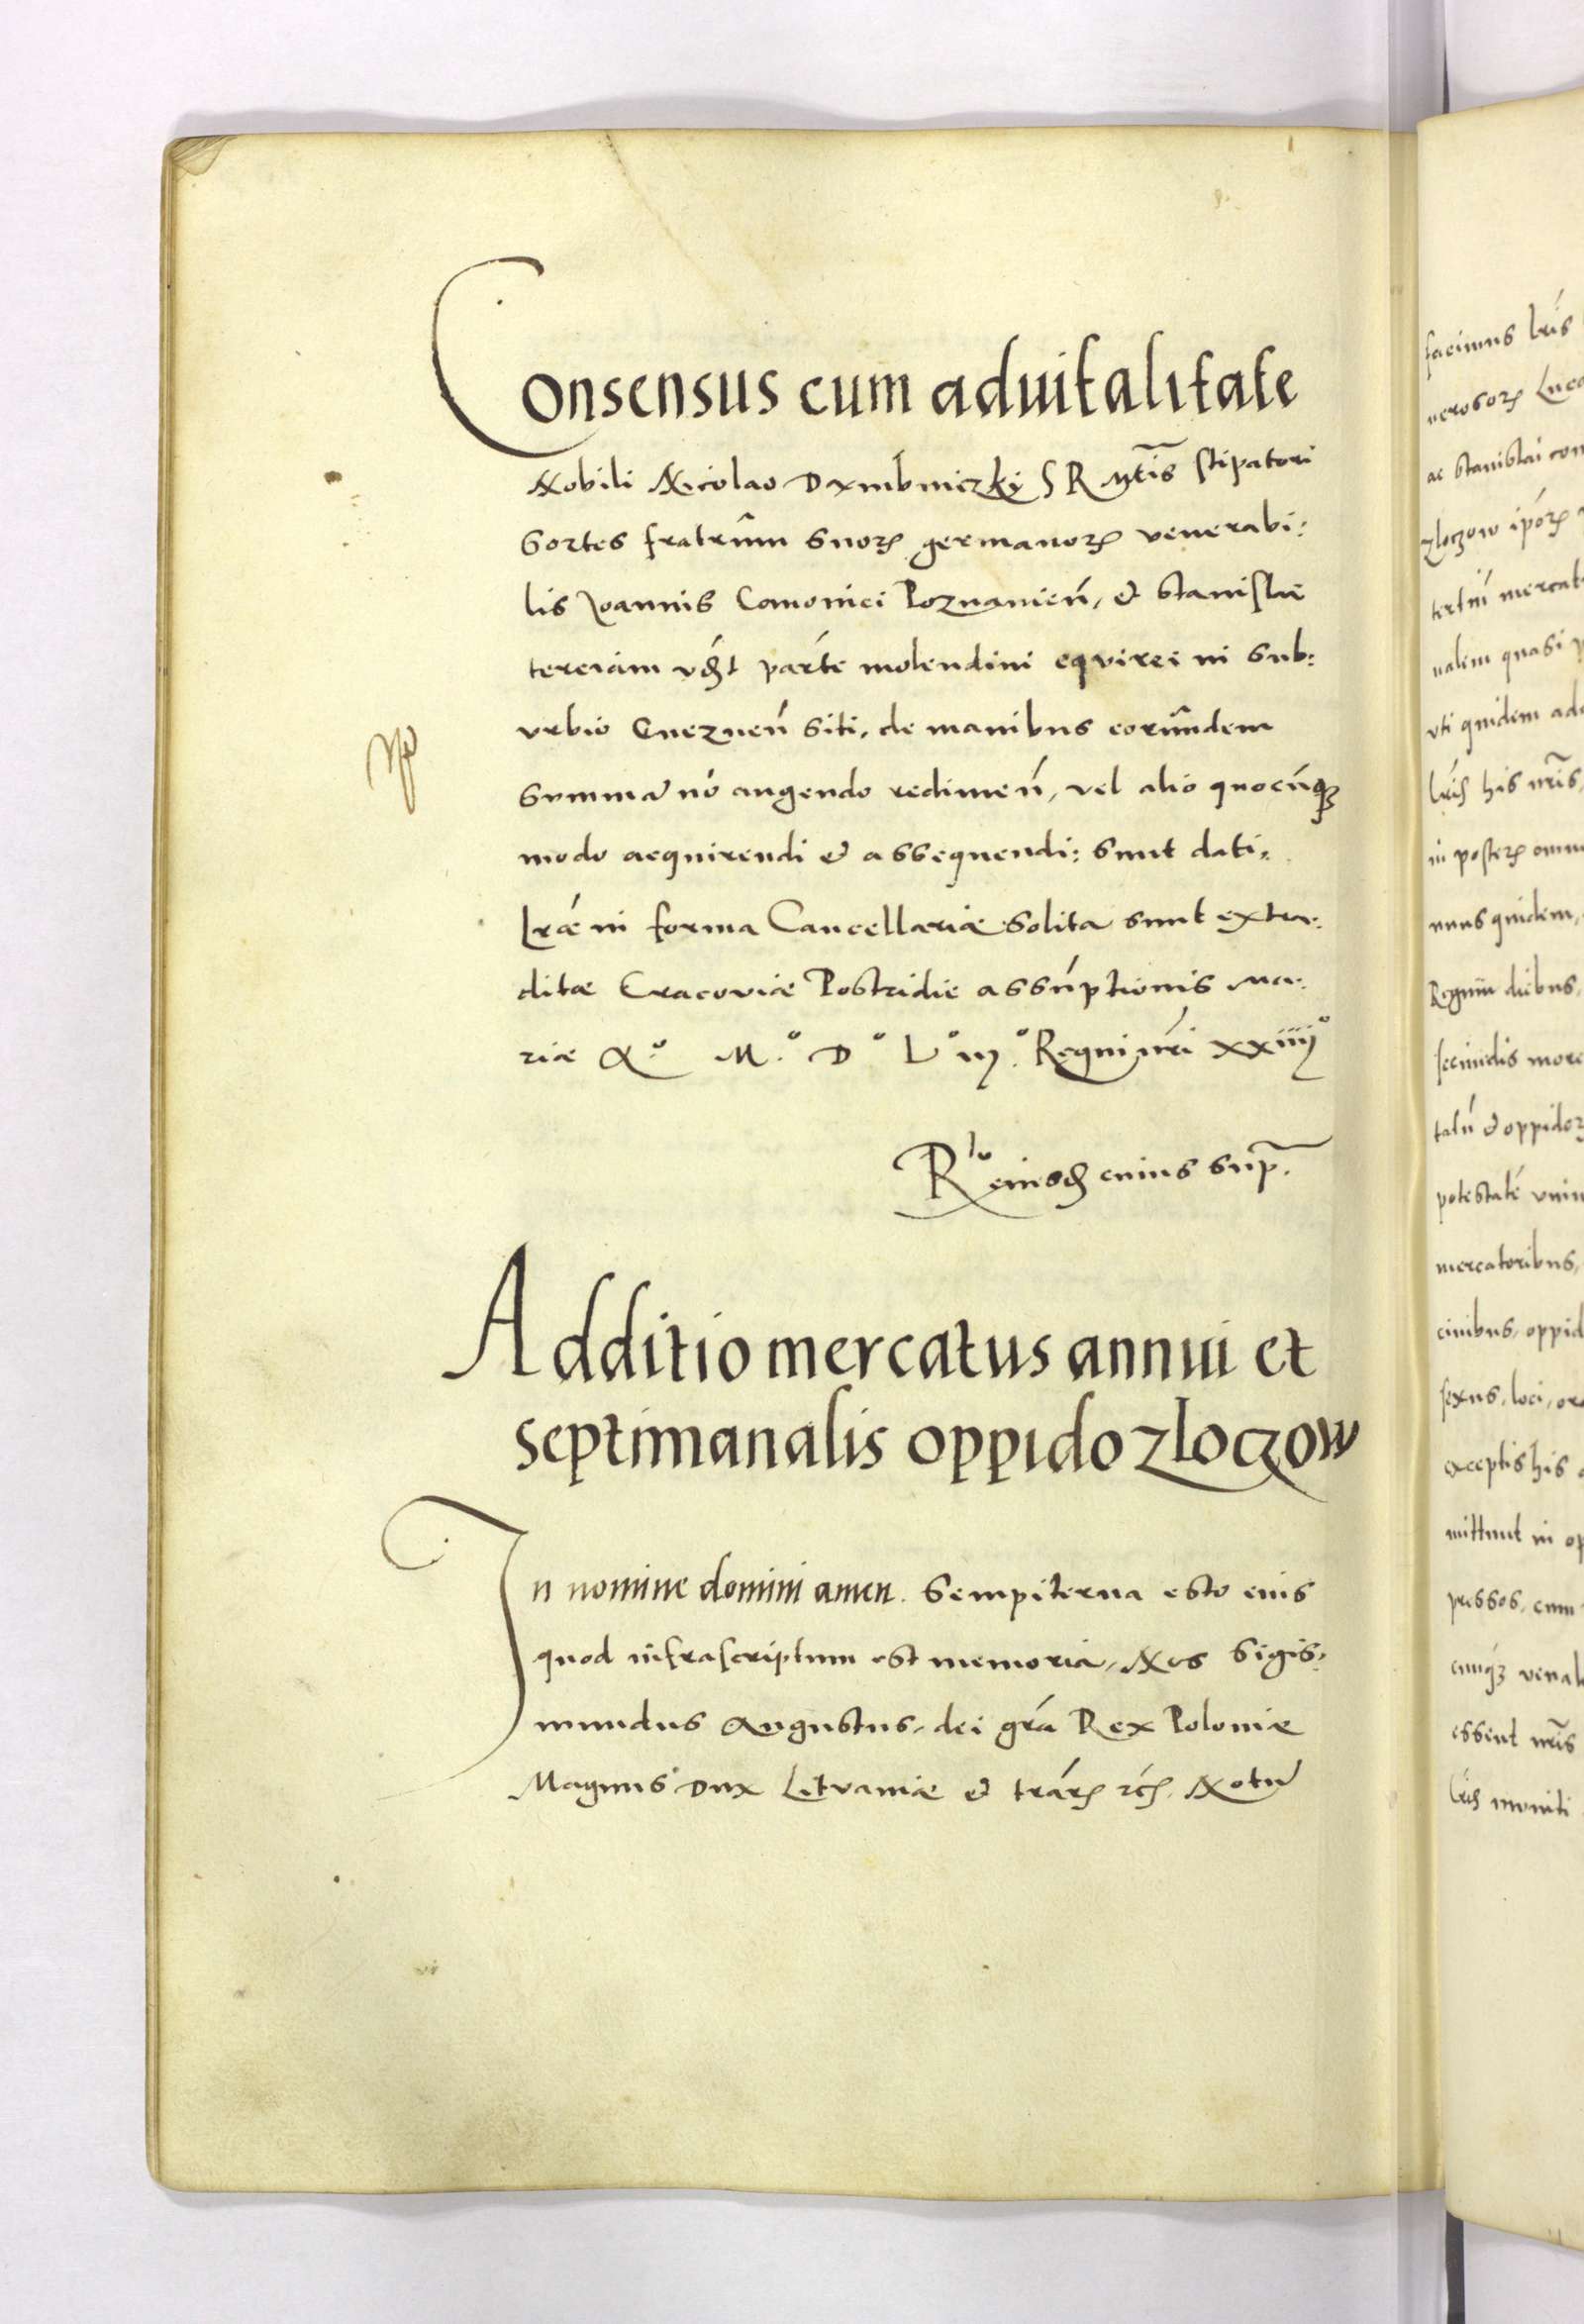 Consensus cum aduitalitate
Nobili Nicolao Dxmbniczky S R Mtis stipatori
sortes fratrum suorꝫ germanorꝫ venerabi:
lis Joannis Canonici Poznanien, & Stanislai
terciam parte molendini equirei in sub:
urbio Gneznen siti, de manibus eorumdem
summa no augendo redimen, vel alio quocunqꝫ
modo acquirendi & assequendi: sunt dati,
Lræ in forma Cancellariæ solita sunt extra:
ditæ Cracoviæ Postridie assumptionis Ma:
riæ Aº. M.º D º Lº iijº. Regni nri xxiiijº
Rlo eiusdem cuius sup.
Additio mercatus annui et
septimanalis oppido Zloczow
In nomine domini amen. Sempiterna esto eius
quod infrascriptum est memoria, Nos Sigis:
mundus Augustus, dei gra Rex Poloniæ
Magnus Dux Lituaniæ & trarꝫ rcꝫ. Notu
facimus lris
nerosorꝫ Luca
ac Stanislai con
Zloczow iporꝫ
tertiu mercat
nalem quasi p
uti quidem ad
lris his nris,
in posterꝫ omn
nuus quidem,
Regnu diebus,
secundis more
talu & oppidoꝝ
potestate
mercatoribus,
ciuibus, oppid
sexus, loci, or
exceptis his
mittunt in op
pressos, cum
cuiqꝫ venal
essent nris
lris muniti